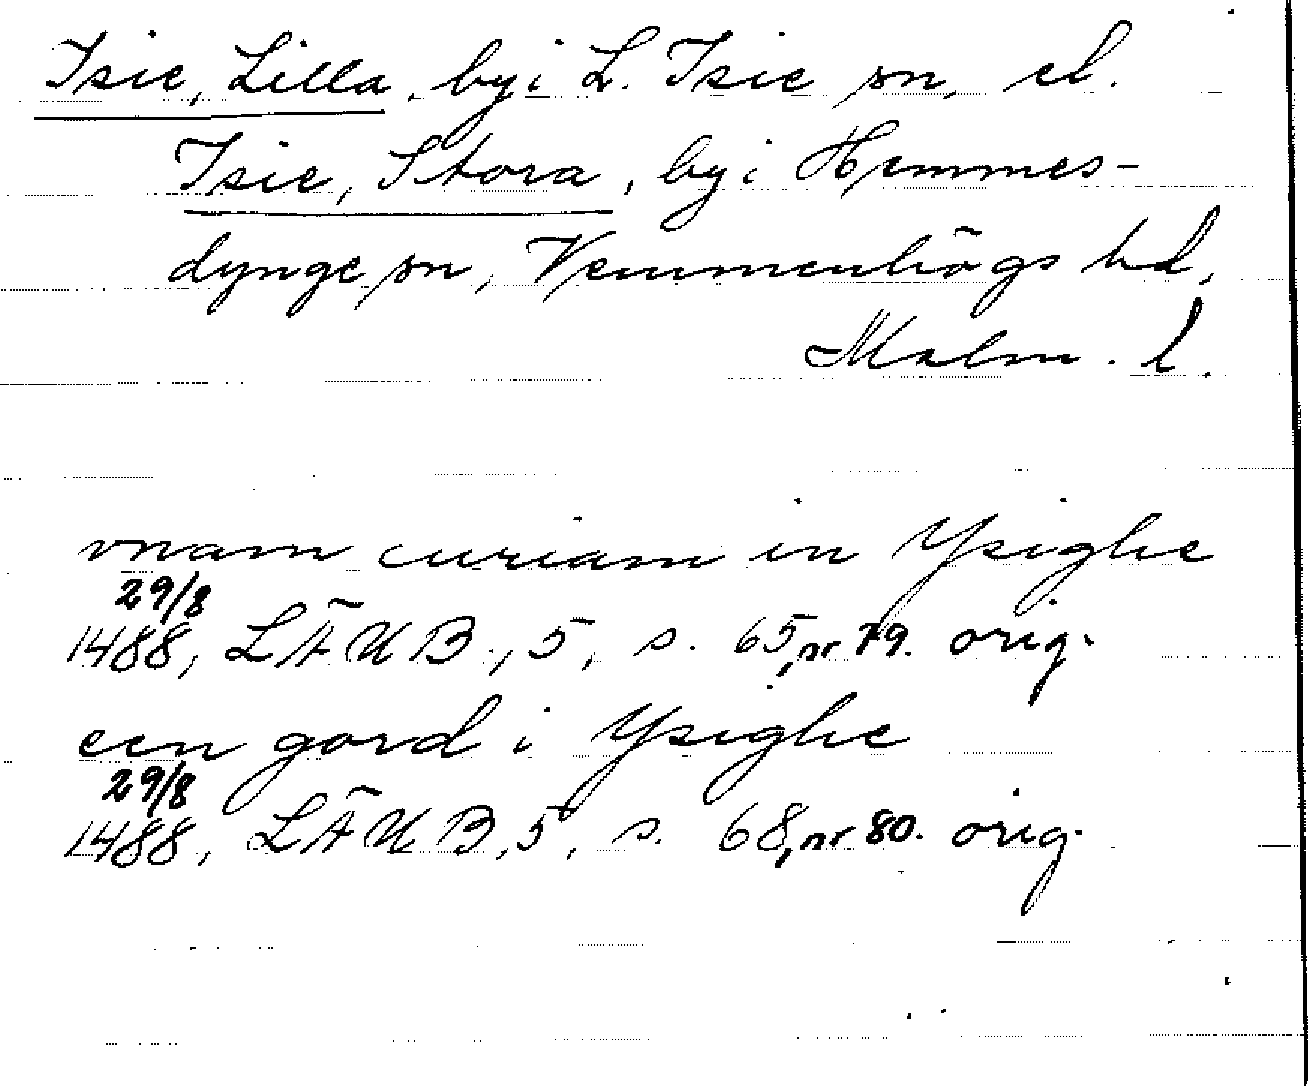 Isie, Lilla, by i L. Isie sn, el.
Isie, Stora, by i Hemmes-
dynge sn, Vemmenhögs hd,
Malm. l.
vnam curiam in Ysighe
29/8
1488, LÄUB, 5, s. 65, nr 79. orig.
een gord i Ysighe
29/8
1488, LÄUB, 5, s. 68, nr 80. orig.